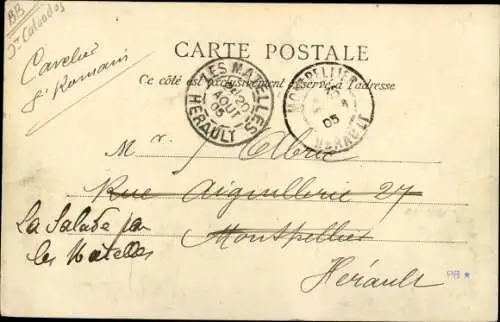 BB
Jn Calvados
Cavelier
St Romain
CARTE POSTALE
Ce côté est exclusivement réservé à l'adresse
LES MATELLES
20
AOUT
05
HERAULT
MONTPELLIER
05
HERAULT
Mr Albric
Rue Aiguillerie 27
Montpellier
La Salade par
les Matelles
Hérault
PB *